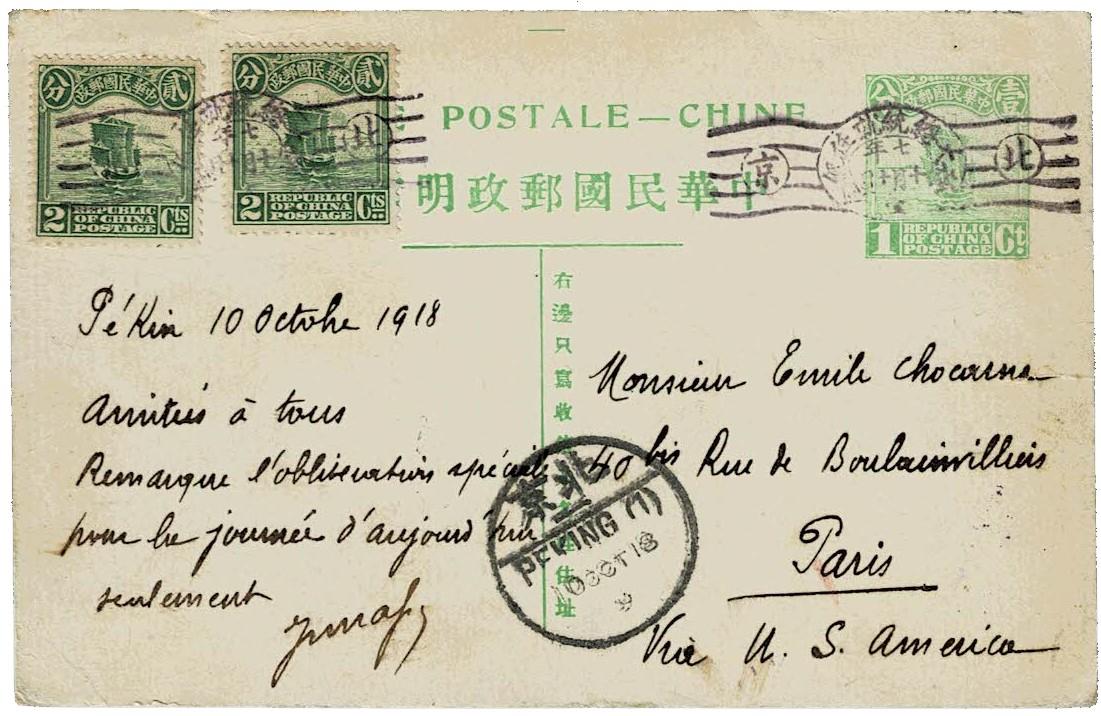 貳分
中華民國郵政
2 Cts
REPUBLIC
OF CHINA
POSTAGE
貳分
中華民國郵政
2 Cts
REPUBLIC
OF CHINA
POSTAGE
北
POSTALE — CHINE
中華民國郵政明
北京
大總統就任
七年
十月十日
壹分
中華民國郵政
1 Ct.
REPUBLIC
OF CHINA
POSTAGE
右邊只寫收 住址
Pékin 10 Octobre 1918
Amitiés à tous
Remarque l'oblitération spéciale
pour la journée d'aujourd'hui
seulement
北京
PEKING (1)
10 OCT 18
Monsieur Emile Chocarne
40 bis Rue de Boulainvilliers
Paris
Via U. S. America